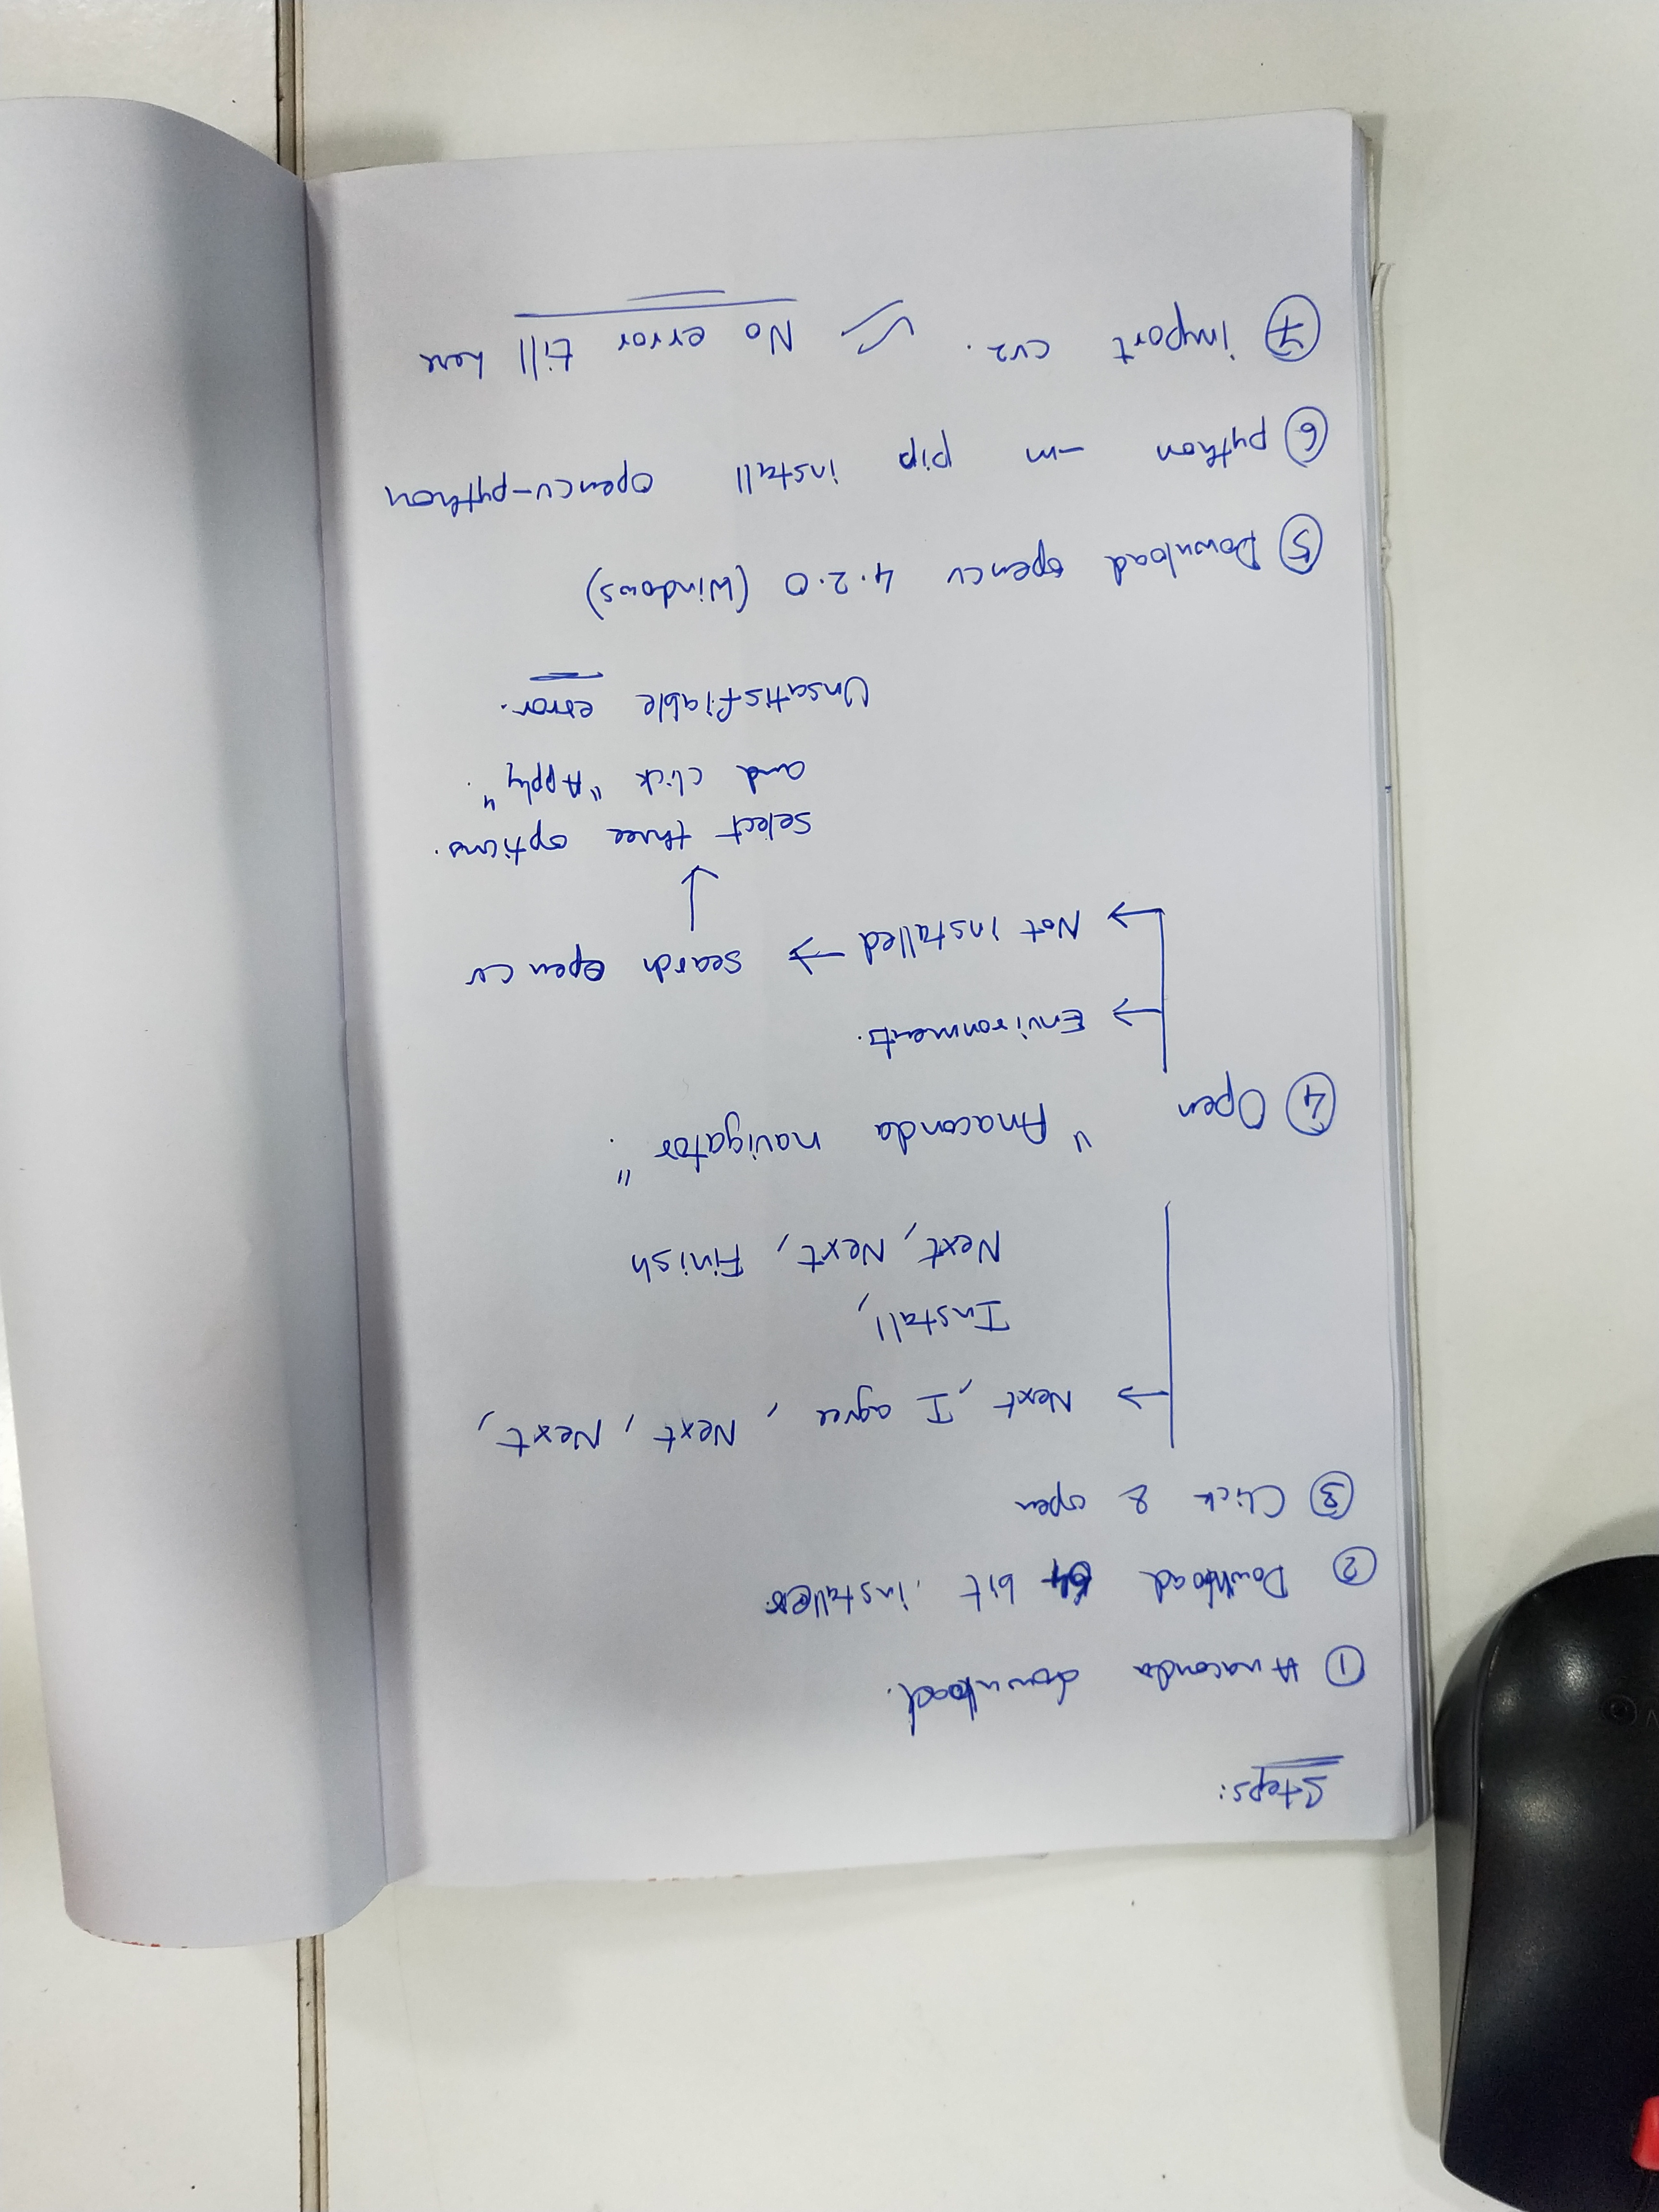 Steps:
① Anaconda download.
② Download 64 bit installer.
③ Click & open
→ Next, I agree, Next, Next,
Install,
Next, Next, Finish
④ Open "Anaconda navigator".
→ Environments.
→ Not installed → search opencv
↓
Select three options.
and click "Apply".
Unsatisfiable error.
⑤ Download opencv 4.2.0 (Windows)
⑥ python -m pip install opencv-python
⑦ import cv2. ✓ No error till here